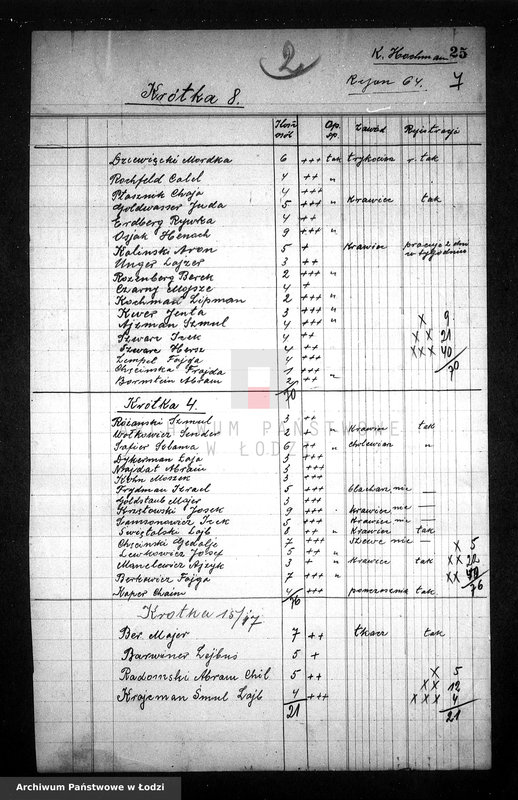 2. K. Hochman 25
Rejon 64. 7
Krótka 8.
Ilość osób Op. sp. Zawód Rejestracji
Dziewięcki Mordka 6 +++ tak trykociarz r. tak
Rochfeld Calel 4 ++ "
Ptasznik Chaja 4 +++
Goldwasser Juda 5 +++ " Krawiec tak
Erdberg Rywka 4 ++
Osjak Henoch 9 +++ "
Kaliński Aron 5 + Krawiec pracuje 2 dni w tygodniu
Unger Lajzer 3 ++
Rozenberg Berek 2 +++ "
Czarny Mojsze 4 +
Kochman Lipman 2 +++ "
Kwer Jenta 3 +++ "
Ajzman Szmul 4 +++ " x 9
Szwarc Icek 4 ++ xx 21
Szwarc Hersz 4 ++ xxx 40
Lempel Fajga 4 ++ 70
Chęcińska Frajda 1 +++
Bornstein Abram 2 ++ "
70
Krótka 4.
Różański Szmul 3 ++
Wołkowicz Sender 2 ++ " Krawiec tak
Szafier Salama 6 ++ " cholewiarz "
Dykerman Łaja 5 +++
Najdat Abram 3 +++
Kohn Moszek 3 +++
Frydman Israel 5 +++ blacharz nie —
Goldstaub Majer 3 +++
Krysztowski Josek 9 +++ . Krawiec nie —
Samsonowicz Icek 5 +++ Krawiec nie —
Swiętalski Lajb 8 ++ " Krawiec tak
Chęciński Gedalje 7 +++ Szewc nie —
Lewkowicz Josef 5 ++ " x 5
Manelewicz Ajzyk 3 + " Krawiec tak xx 22
Berkowicz Fajga 7 +++ " xx 49
Kaper Chaim 4 +++ pomocznica tak 76
76
Krotka 15/17
Ber Majer 7 ++ tkacz tak
Barwiner Lejbuś 5 +
Radomski Abram Chil 5 ++ x 5
xx 12
Krojcman Smul Lajb 4 +++ xxx 4
21 21
ARCHIWUM PAŃSTWOWE
W ŁODZI
Archiwum Państwowe w Łodzi